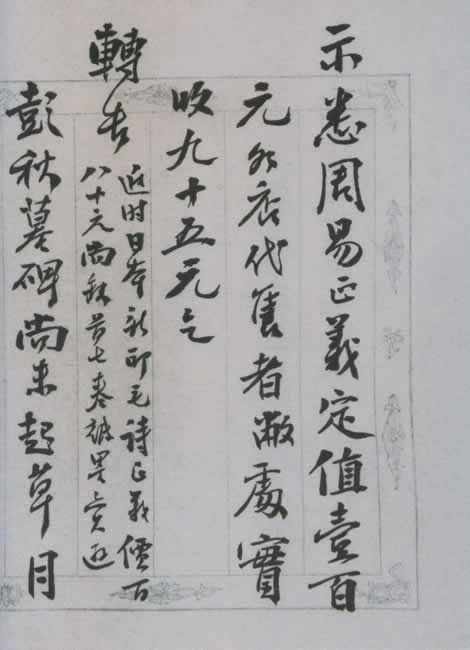 示悉周易正義定值壹百
元外店代售者敝處實
收九十五元乞
轉告
近时日本新印毛詩正義價百
八十元尚缺首七卷
彭秋墓碑尚未起草月